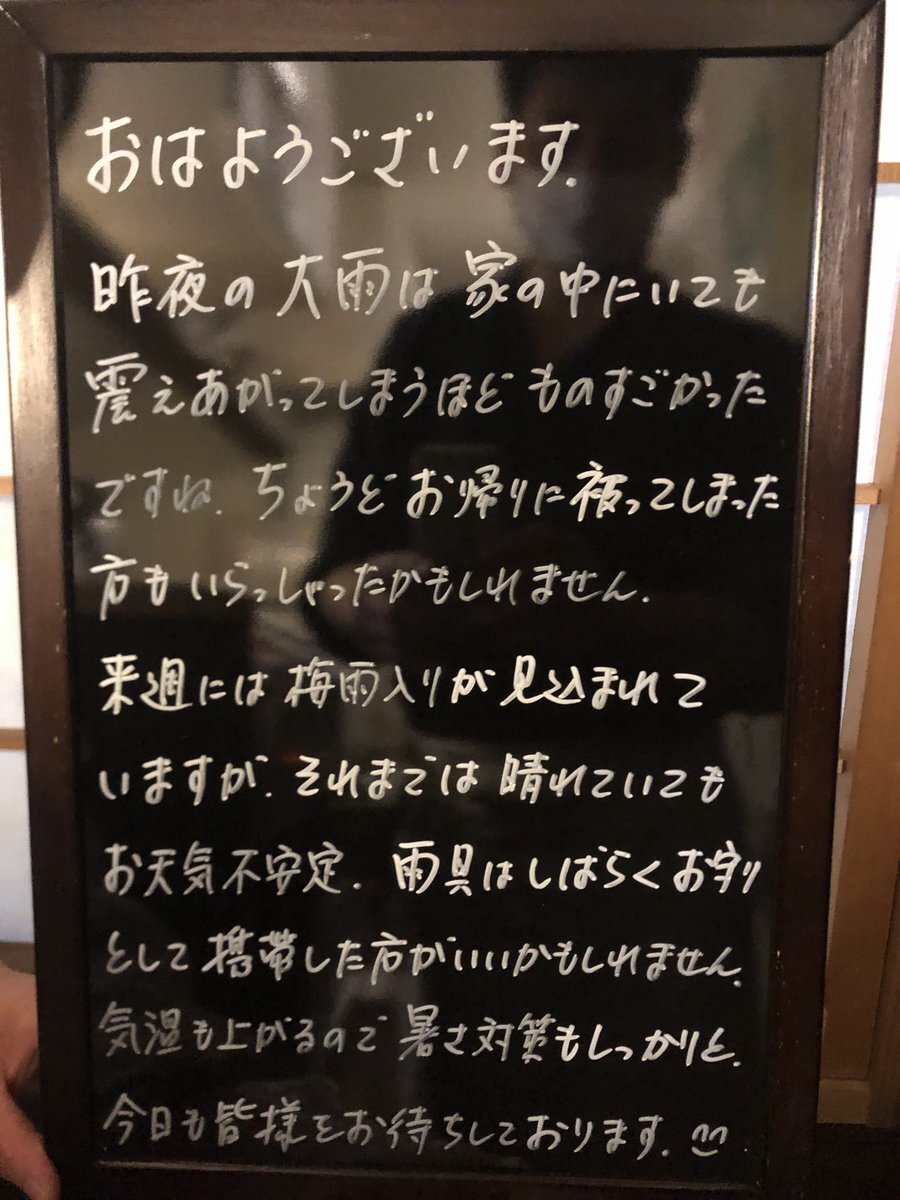 おはようございます.
昨夜の大雨は家の中にいても
震えあがってしまうほどものすごかった
ですね. ちょうどお帰りに被ってしまった
方もいらっしゃったかもしれません.
来週には梅雨入りが見込まれて
いますが. それまでは晴れていても
お天気不安定. 雨具はしばらくお守り
として携帯した方がいいかもしれません.
気温も上がるので暑さ対策もしっかりと.
今日も皆様をお待ちしております.